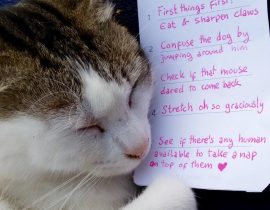 1 First things first!
Eat & sharpen claws
2 Confuse the dog by
jumping around him
Check if that mouse
dared to come back
4 Stretch oh so graciously
See if there's any human
available to take a nap
on top of them ♥